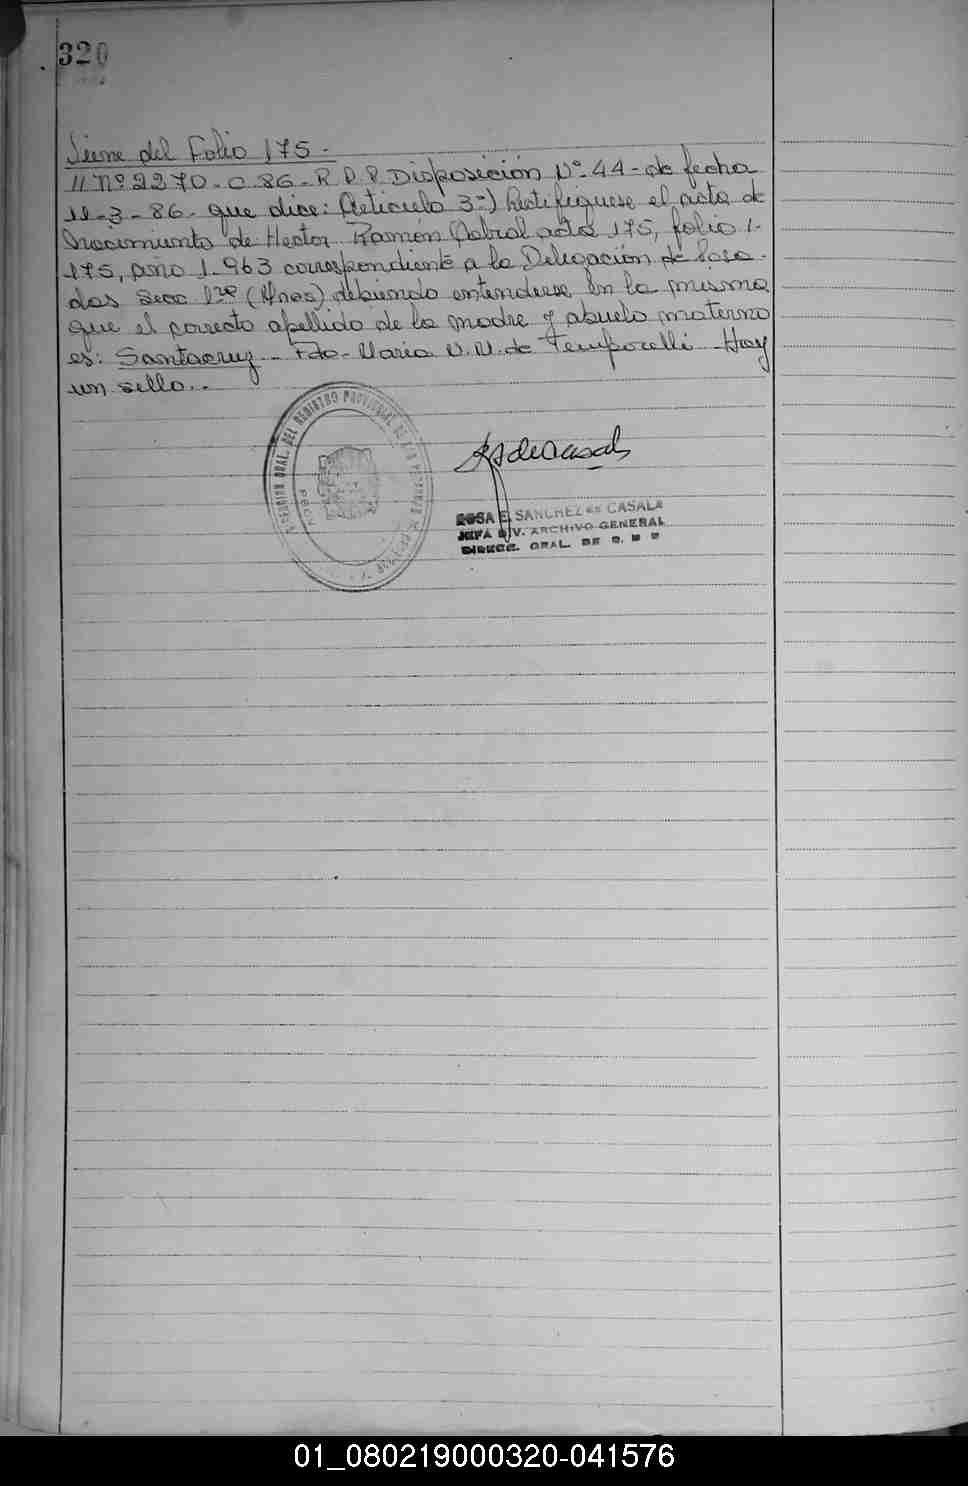 320
Viene del Folio 175.-
// Nº 2270-C-86-R.P.P. Disposición Nº 44- de fecha
11-3-86- que dice: Articulo 3º-) Rectifiquese el acta de
nacimiento de Hector Ramon Cabral acta 175, folio 1-
175, año 1.963 correspondiente a la Delegación de Posa-
das Secc 1ra (Mnes) debiendo entenderse en la misma
que el correcto apellido de la madre y abuelo materno
es: Santacruz-- Fdo- Maria V.V. de Temporelli- Hay
un sello..-
DIRECCION GRAL. DEL REGISTRO PROVINCIAL DE LAS PERSONAS
ROSA E. SANCHEZ de CASALA
JEFA DIV. ARCHIVO GENERAL
DIRECC. GRAL. DE R.
01_080219000320-041576